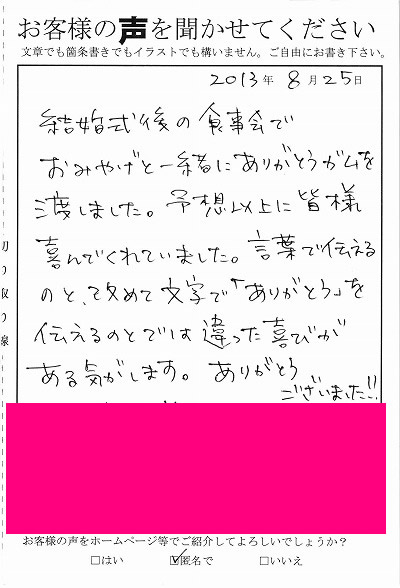 お客様の声を聞かせてください
文章でも箇条書きでもイラストでも構いません。ご自由にお書き下さい。
2013年 8月25日
結婚式後の食事会で
おみやげと一緒にありがとうガムを
渡しました。予想以上に皆様
喜んでくれていました。言葉で伝える
のと、改めて文字で「ありがとう」を
伝えるのとでは違った喜びが
ある気がします。ありがとう
ございました!!
お客様の声をホームページ等でご紹介してよろしいでしょうか?
□はい ☑匿名で □いいえ